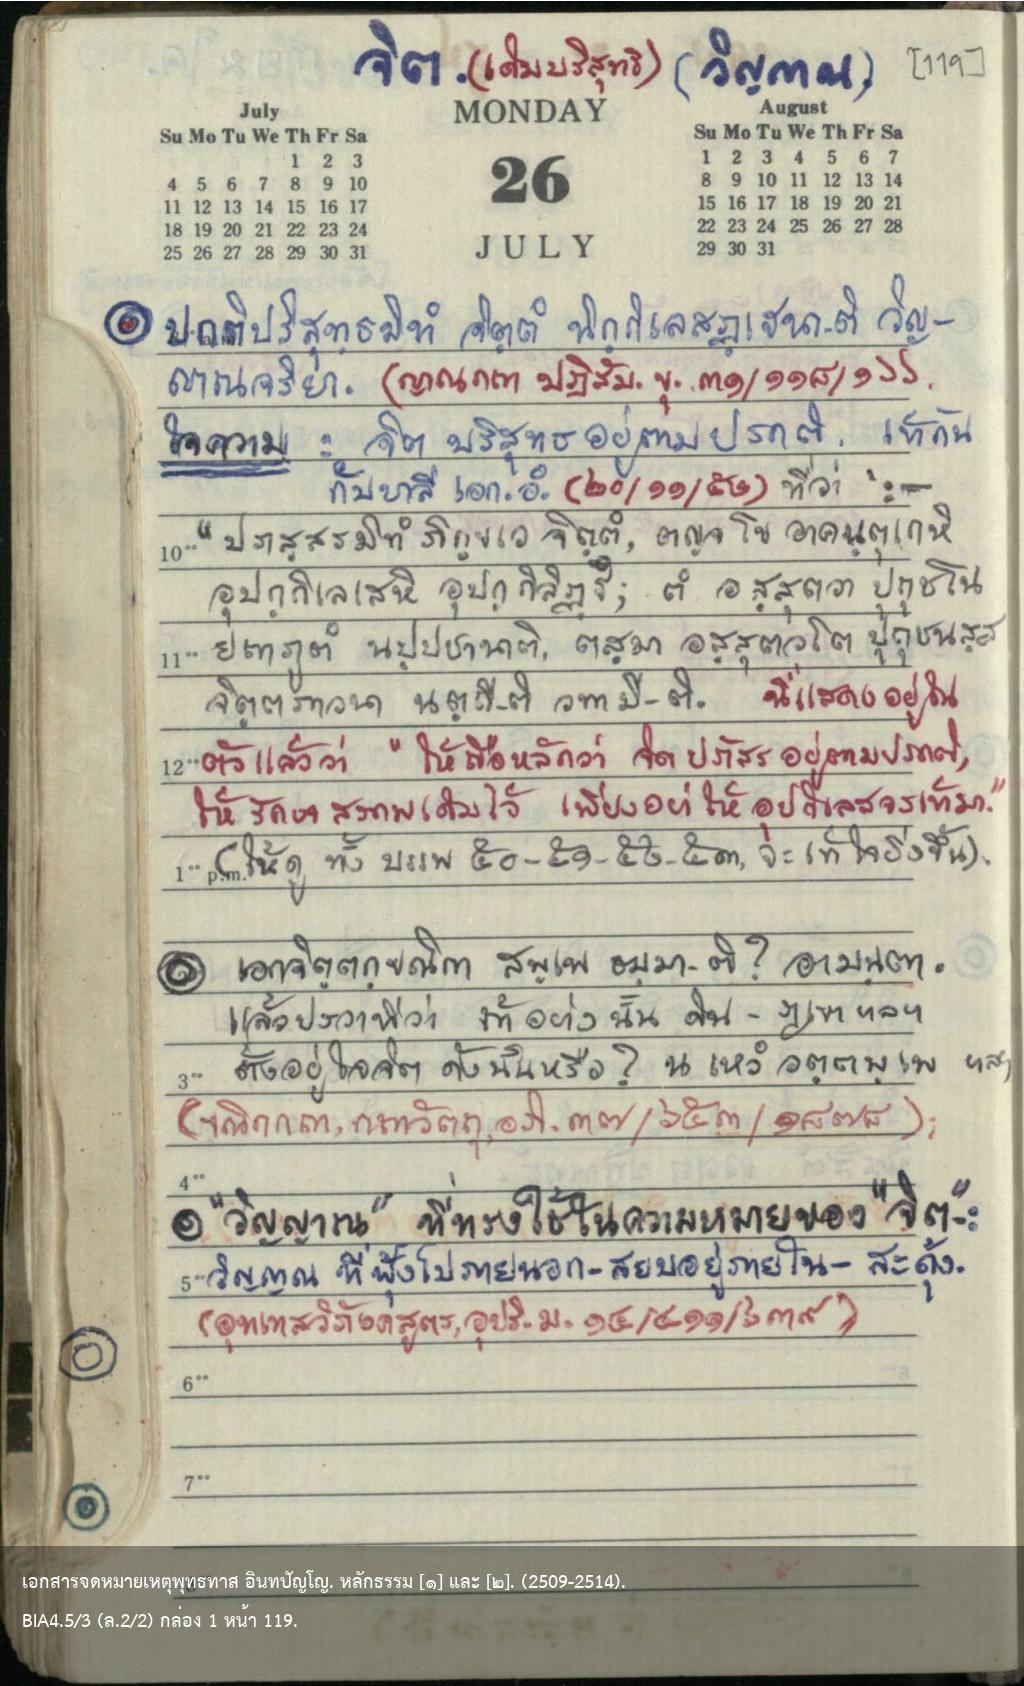 จิต. (เดิมบริสุทธิ) (วิญฺญาณ) [119]
July
MONDAY
August
Su Mo Tu We Th Fr Sa
1 2 3
4 5 6 7 8 9 10
11 12 13 14 15 16 17
18 19 20 21 22 23 24
25 26 27 28 29 30 31
26
JULY
Su Mo Tu We Th Fr Sa
1 2 3 4 5 6 7
8 9 10 11 12 13 14
15 16 17 18 19 20 21
22 23 24 25 26 27 28
29 30 31
ปกติปริสุทฺธมิทํ จิตฺตํ นิกฺกิเลสฏฺเฐนา-ติ วิญฺ-
ญาณจริยา. (ญาณกถา ปฏิสัม. ขุ. ๓๑/๑๑๘/
ใจความ : จิต บริสุทธอยู่ตามปรกติ. เท้กัน
กับบาลี เอก. อํ. (๒๐/๑๑/๕๑) ที่ว่า :-
10°° " ปภสฺสรมิทํ ภิกฺขเว จิตฺตํ, ตญฺจ โข อาคนฺตุเกหิ
อุปกฺกิเลเสหิ อุปกฺกิลิฏฺฐํ; ตํ อสฺสุตวา ปุถุชโน
11°° ยถาภูตํ นปฺปชานาติ, ตสฺมา อสฺสุตวโต ปุถุชนสฺส
จิตฺตภาวนา นตฺถี-ติ วทามี-ติ. " นี่แสดงอยู่ใน
12°° ตัวแล้วว่า " ให้ถือหลักว่า จิตปภัสร อยู่ตามปรกติ,
ให้รักษาสภาพเดิมไว้ เพียงอย่าให้อุปกิเลสจรเท้มา."
1°° p.m. (ให้ดู ทั้ง บรรพ ๕๐-๕๑-๕๒-๕๓, จะเท้าใจยิ่งขึ้น).
เอกจิตฺตกฺขณิกา สพฺเพ ธมฺมา-ติ? อามนฺตา.
แล้วปรวาทีว่า ถ้าอย่างนั้น ดิน - ภูเขา ฯลฯ
3°° ตั้งอยู่ในจิต ดังนั้นหรือ? น เหวํ วตฺตพฺเพ ฯลฯ
(ขณิกกถา, กถาวัตถุ, อภิ. ๓๗/๖๕๓/๑๘๗๘);
4°°
๑ "วิญญาณ" ที่ทรงใช้ในความหมายของ "จิต"-:
5°° วิญญาณ ที่ฟุ้งไปภายนอก-สยบอยู่ภายใน- สะดุ้ง.
(อุทเทสวิภังคสูตร, อุปริ. ม. ๑๔/๔๑๑/๖๓๙)
6°°
7°°
เอกสารจดหมายเหตุพุทธทาส อินทปัญโญ. หลักธรรม [๑] และ [๒]. (2509-2514).
BIA4.5/3 (ล.2/2) กล่อง 1 หน้า 119.